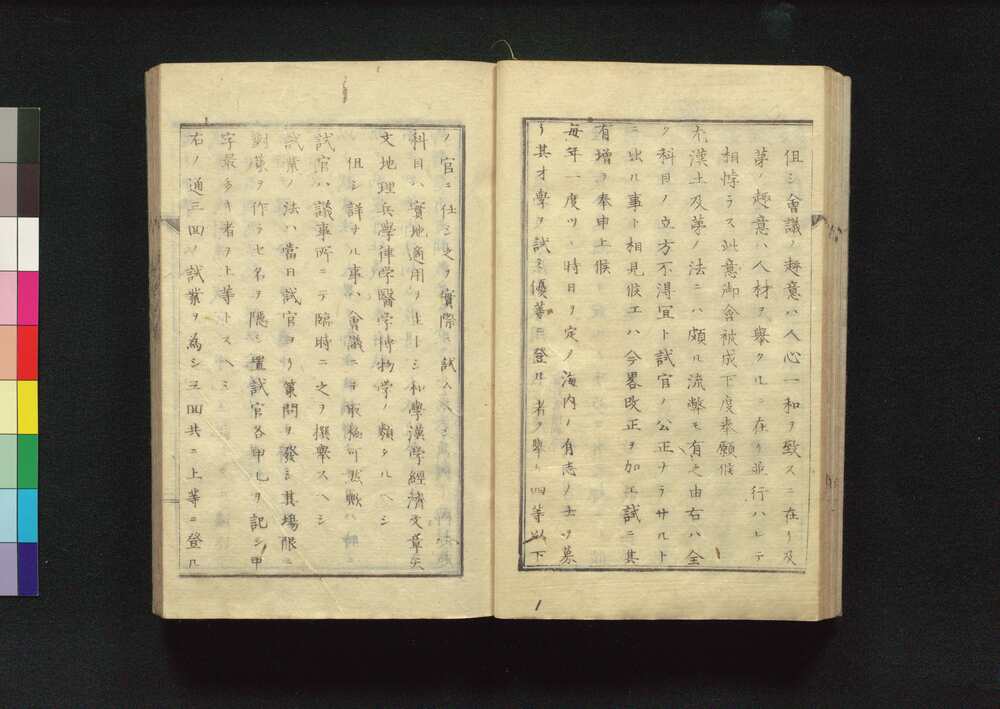 但シ會議ノ趣意ハ人心一和ヲ致スニ在リ及
第ノ趣意ハ人材ヲ舉クルニ在リ並行ハレテ
相悖ラス此意御含被成下度奉願候
本漢土及第ノ法ニハ頗ル流弊モ有之由右ハ全
ク科目ノ立方不得宜ト試官ノ公正ナラサルト
ニ出ル事ト相見候エハ今畧改正ヲ加エ試ニ其
有増ヲ奉申上候
每年一度ツヽ時日ヲ定メ海内ノ有志ノ士ヲ募
リ其才學ヲ試ミ優等ニ登ル者ヲ舉ケ四等以下
ノ官ニ仕シ之ヲ實際ニ試ムヘシ
科目ハ實地適用ヲ主トシ和學漢學經濟文章天
文地理兵學律学醫学博物学ノ類タルヘシ
但シ詳ナル事ハ會議ニテ取極可然歟
試官ハ議事所ニテ臨時ニ之ヲ撰舉スヘシ
試業ノ法ハ當日試官ヨリ策問ヲ發シ其場限ニ
對策ヲ作ラセ名ヲ隱シ置試官各甲乙ヲ記シ甲
字最多キ者ヲ上等トスヘシ
右ノ通三四ノ試業ヲ為シ三四共ニ上等ニ登ル